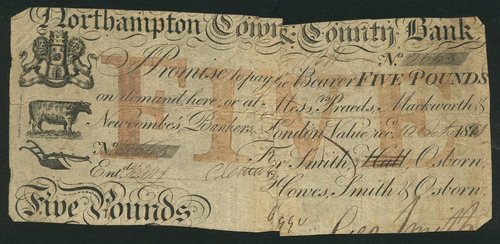 Northampton Town & County Bank
No
Promise to pay the Bearer FIVE POUNDS
on demand, here, or at Messrs. Praeds, Mackworth &
Newcombe's, Bankers, London, Value recd.
No
For Smith, Hall Osborn
Entd.
Howes, Smith & Osborn.
Five Pounds
FIVE
Smith